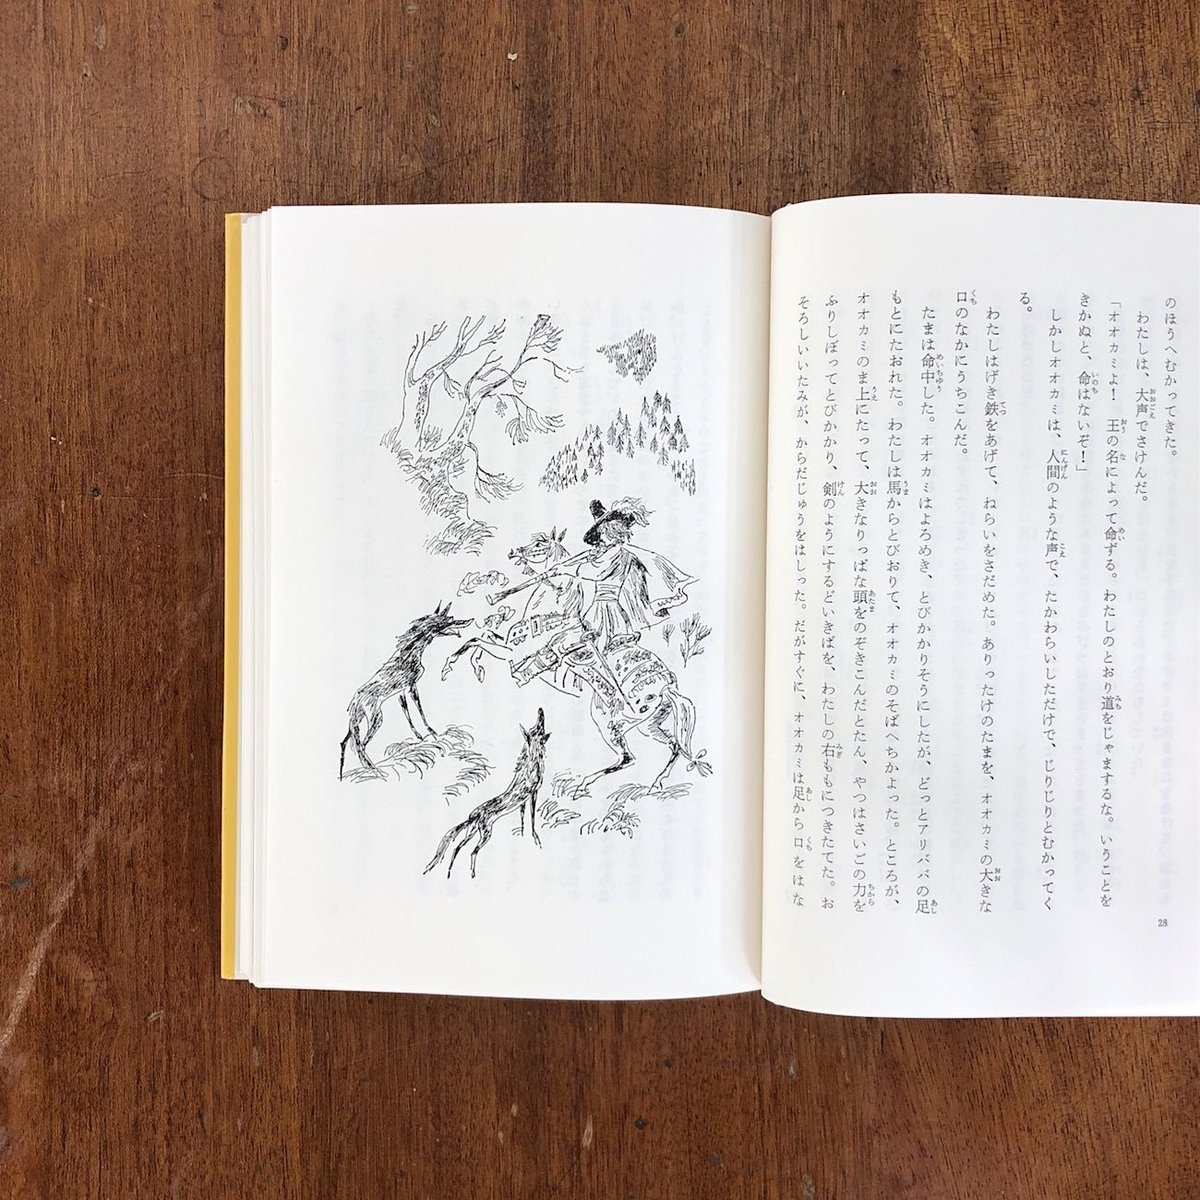 のほうへむかってきた。
わたしは、大声でさけんだ。
「オオカミよ！　王の名によって命ずる。わたしのとおり道をじゃまするな。いうことを
きかぬと、命はないぞ！」
しかしオオカミは、人間のような声で、たかわらいしただけで、じりじりとむかってく
る。
わたしはげき鉄をあげて、ねらいをさだめた。ありったけのたまを、オオカミの大きな
口のなかにうちこんだ。
たまは命中した。オオカミはよろめき、とびかかりそうにしたが、どっとアリババの足
もとにたおれた。わたしは馬からとびおりて、オオカミのそばへちかよった。ところが、
オオカミのま上にたって、大きなりっぱな頭をのぞきこんだとたん、やつはさいごの力を
ふりしぼってとびかかり、剣のようにするどいきばを、わたしの右ももにつきたてた。お
そろしいいたみが、からだじゅうをはしった。だがすぐに、オオカミは足から口をはな
23